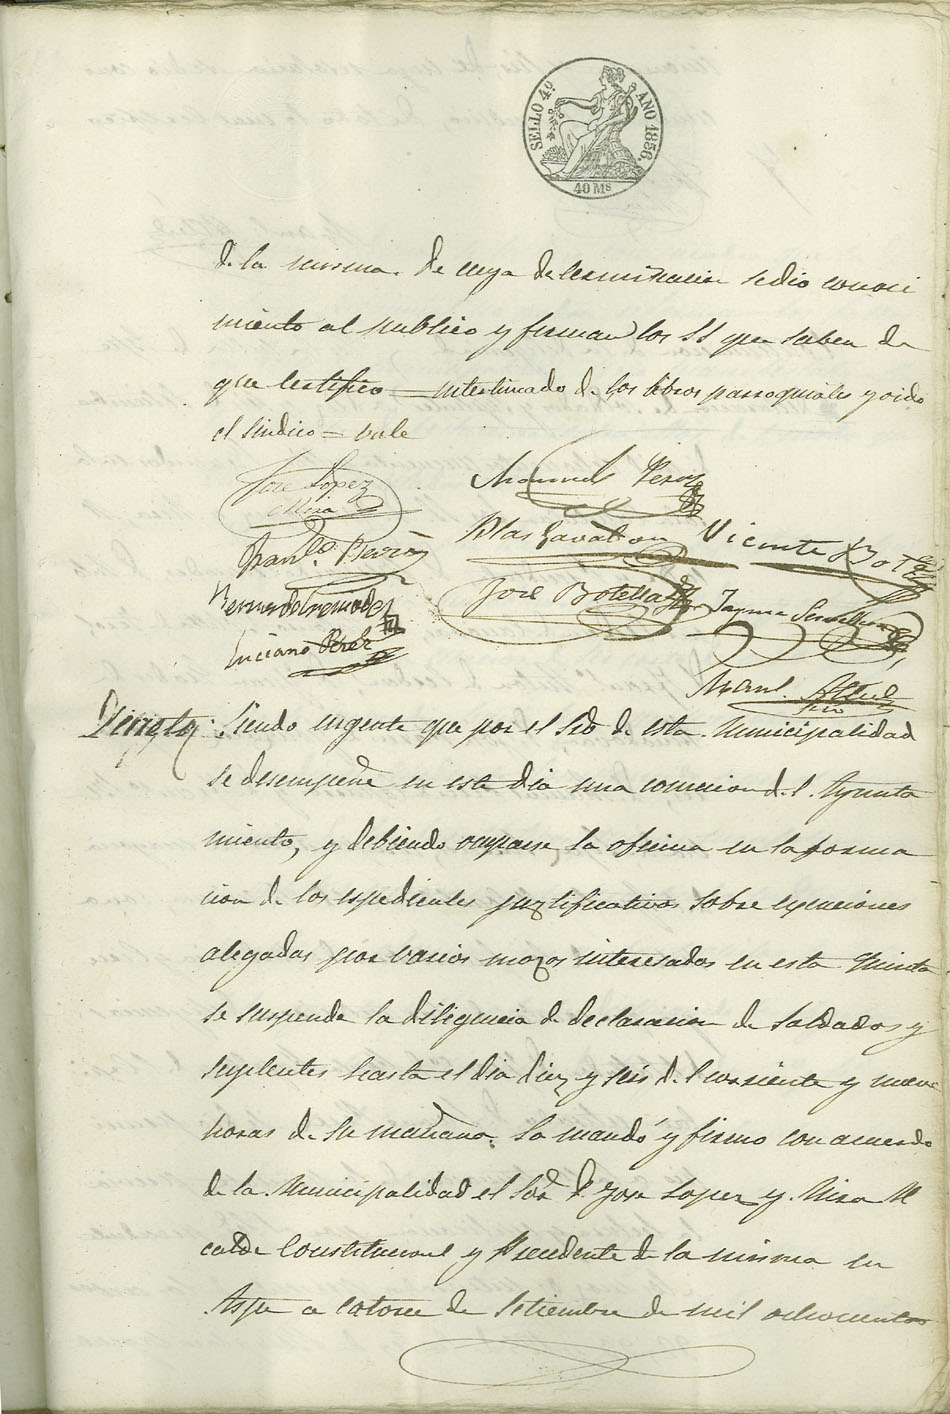 SELLO 4º AÑO 1856.
40 Ms
de la misma. De cuya determinacion se dio conoci
miento al publico y firman los SS que saben de
que certifico = interlineado de los libros parroquiales y oido
el Sindico = vale
Jose Lopez
Mira
Manuel Perez
Franco. Perez
Blas Gavaldon
Vicente Botella
Jose Botella
Luciano Perez
Manl.
Siendo urgente que por el Srio de esta Municipalidad
se desempeñe en este dia una comicion del Ayunta
miento, y debiendo ocuparse la oficina en la forma
cion de los espedientes justificativos sobre exenciones
alegadas por varios mozos interesados en esta Quinta
se suspende la diligencia de declaracion de Soldados y
suplentes hasta el dia diez y seis del corriente y nueve
horas de su mañana. Lo mandó y firmo con acuerdo
de la Municipalidad el Sor. D. Jose Lopez y Mira Al
calde Constitucional y Presidente de la misma en
Aspe a catorce de Setiembre de mil ochocientos